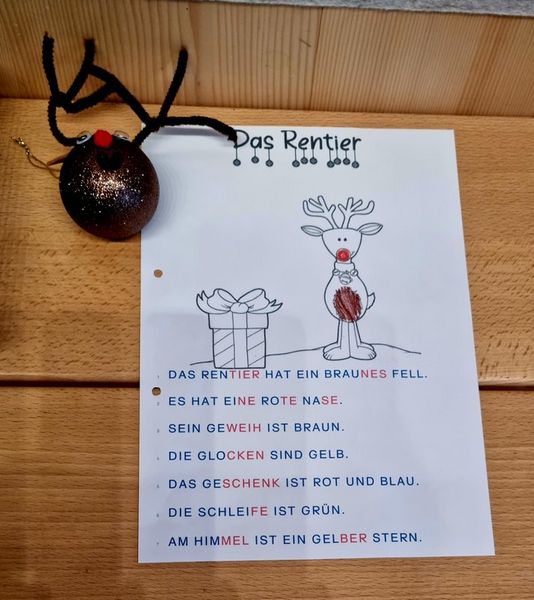 Das Rentier
1 DAS RENTIER HAT EIN BRAUNES FELL.
2 ES HAT EINE ROTE NASE.
3 SEIN GEWEIH IST BRAUN.
4 DIE GLOCKEN SIND GELB.
5 DAS GESCHENK IST ROT UND BLAU.
6 DIE SCHLEIFE IST GRÜN.
7 AM HIMMEL IST EIN GELBER STERN.